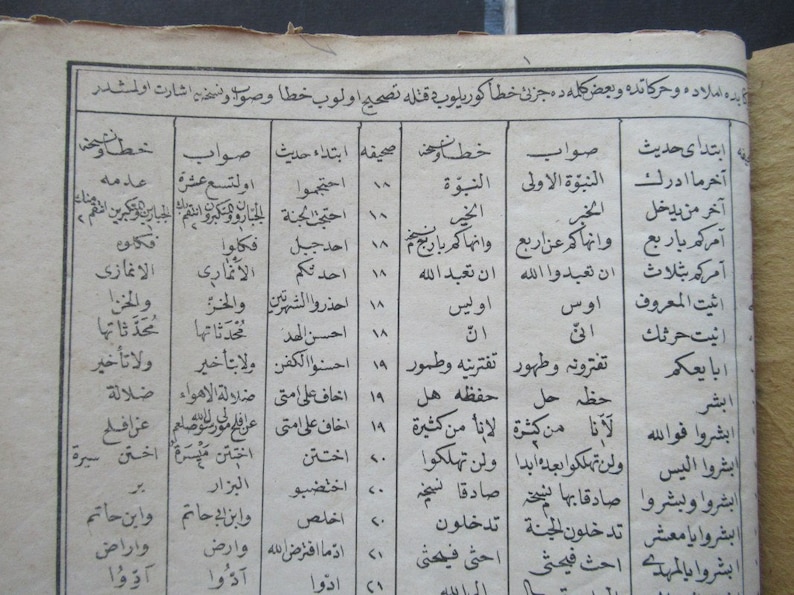 املاده وحركاتده وبعض كلمه ده جزئ خطأ كوريلوب دقتله تصحيح اولوب خطا وصواب ونسخه يه اشارت اولمشدر
ابتداى حديث صواب خطا ونسخه صحيفه ابتداء حديث صواب خطا ونسخه
آخر ما ادرك النبوّة الاولى النبوّة ١٨ احتجموا اولتسع عشرة
آخر من يدخل الخبر الخير ١٨ احتجّ الجنة
آمركم باربع وانهاكم عن اربع وانهاكم باربع نسخم ١٨ احد جبل
آمركم بثلاث ان تعبدوا الله ان تعبد الله ١٨ احدثكم الأنمارى الانمازى
اثيت المعروف اوس اويس ١٨ احذروا الشهرتين والخزّ والخزا
اثيت حرثك انّى انّ ١٨ احسن الهد مُحْدَثاتها مُحَدَّثاتها
ابايعكم تفترونه وطهور تفترينه وطمور ١٩ احسنوا الكفن ولا بتأخير ولا تأخير
ابشر حظه حل حفظه هل ١٩ اخاف على امتى ضلالة الاهواء ضلالة
ابشروا فوالله لَأنا من كثرة لانأ من كثيرة ١٩ اخاف على امتى عن افلح
ابشروا اليس ولن تهلكوا بعده ابدا ولن تهلكوا ٢٠ اختتن اختتن اختتن سيرة
ابشروا وبشروا صادقا بها نسخه صادقا نسخه ٢٠ اختضبو البزار بر
ابشروا يا معشر تدخلون الجنة تدخلون ٢٠ اخلص وابن ابى حاتم وابن حاتم
ابشروا بالمهدى احث فيحثى احثى فيحثى ٢١ ادّ ما افترض الله وارض واراض
٢١ ادّوا آدُّوا آدِّوُا